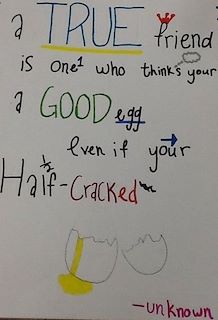 a TRUE friend
is one1 who thinks your
a GOOD egg
Even if your
1/2
Half-Cracked
-unknown